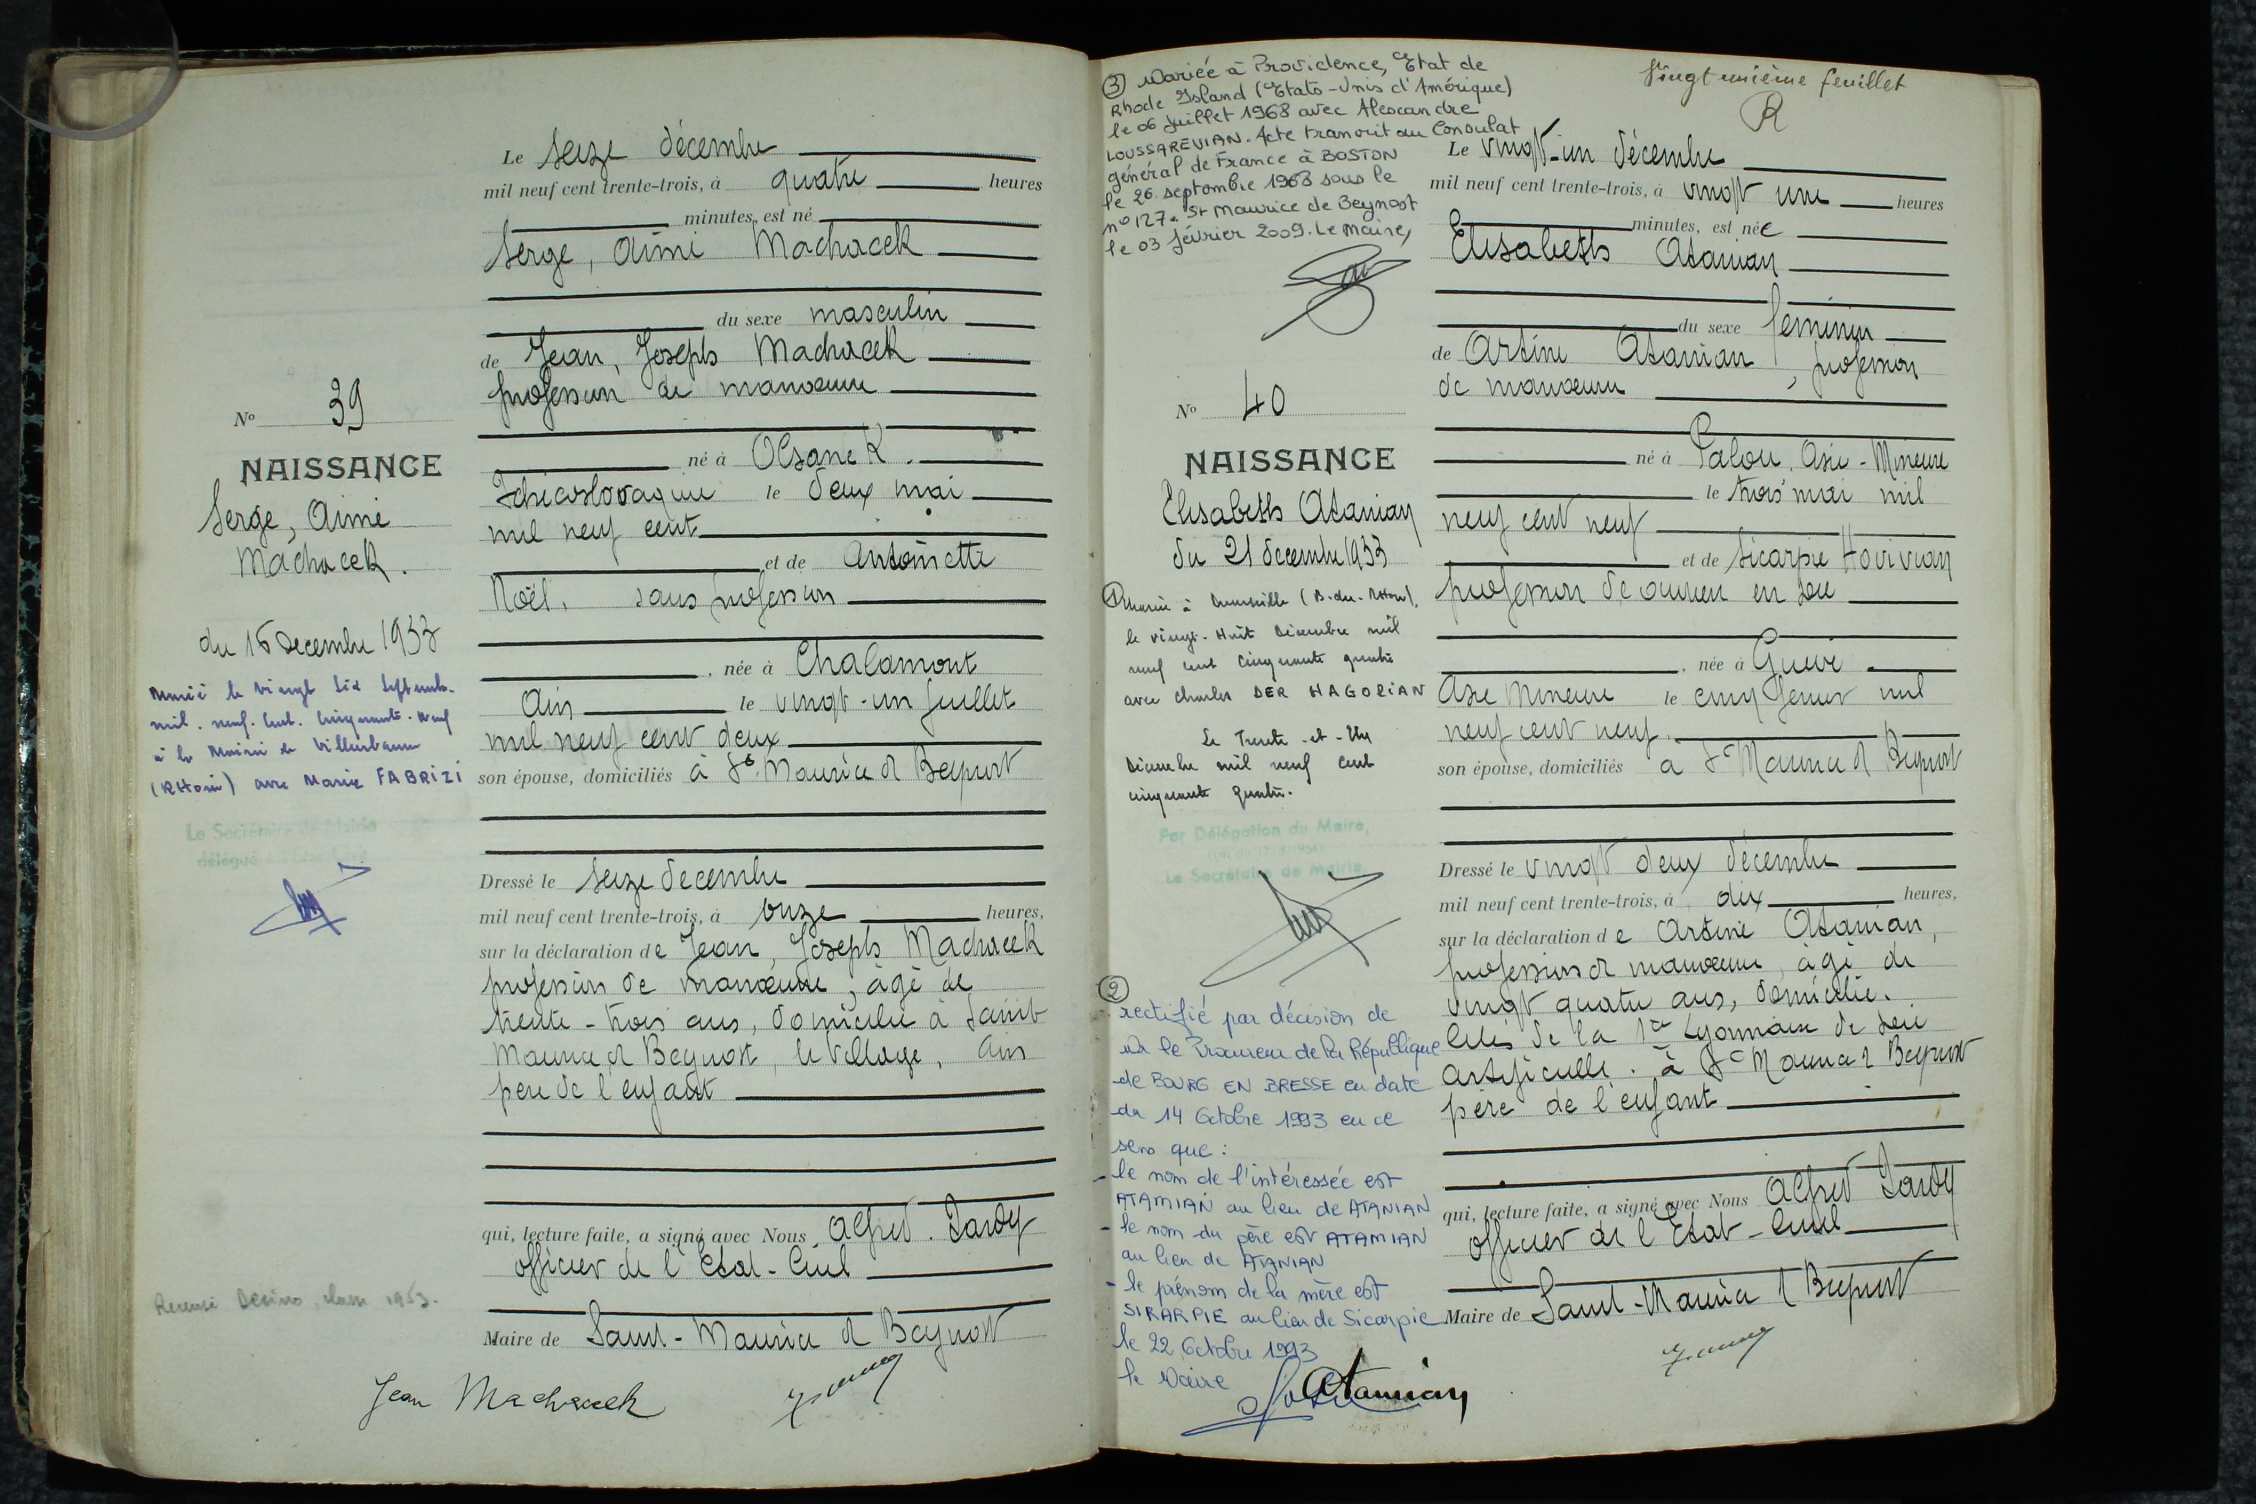 Le seize décembre
mil neuf cent trente-trois, à quatre heures
minutes, est né
Serge, Aimé Machacek
du sexe masculin
de Jean, Joseph Machacek
profession de manœuvre
né à Olsanek.
Tchécoslovaquie le deux mai
mil neuf cent
et de Antoinette
Noël, sans profession
, née à Chalamont
Ain le vingt-un juillet
mil neuf cent deux
son épouse, domiciliés à St Maurice d Beynost
Dressé le seize décembre
mil neuf cent trente-trois, à onze heures,
sur la déclaration de Jean, Joseph Machacek
profession de manœuvre, âgé de
trente-trois ans, domicilié à Saint
Maurice d Beynost, le village, Ain
père de l'enfant
qui, lecture faite, a signé avec Nous Alfred
officier de l'Etat-Civil
Maire de Saint-Maurice d Beynost
Jean Machacek
No 39
NAISSANCE
Serge, Aimé
Machacek.
du 16 décembre 1933
Marié le vingt six septembre
mil. neuf. cent. cinquante. neuf
à la Mairie de Villeurbanne
(Rhône) avec Marie FABRIZI
Le Secrétaire de Mairie
délégué
classe 1953.
Vingt unième feuillet
R
③ Mariée à Providence, Etat de
Rhode Island (Etats-Unis d'Amérique)
le 06 juillet 1968 avec Alexandre
LOUSSAREVIAN. Acte transcrit au Consulat
général de France à BOSTON
le 26 septembre 1968 sous le
n° 127. St Maurice de Beynost
le 03 février 2009. Le Maire,
No 40
NAISSANCE
Elisabeth Atanian
du 21 décembre 1933
① Marié à Marseille (B.-du-Rhône),
le vingt-huit décembre mil
neuf cent cinquante quatre
avec Charles DER HAGOPIAN
Le Trente-et-Un
Décembre mil neuf cent
cinquante quatre.
Par Délégation du Maire,
Le Secrétaire de mairie
②
rectifié par décision de
Mr le Procureur de la République
de BOURG EN BRESSE en date
du 14 Octobre 1993 en ce
sens que :
- le nom de l'intéressée est
ATAMIAN au lieu de ATANIAN
- le nom du père est ATAMIAN
au lieu de ATANIAN
- le prénom de la mère est
SIRARPIE au lieu de Sicarpie
le 22 Octobre 1993
le Maire
Le vingt-un décembre
mil neuf cent trente-trois, à vingt une heures
minutes, est née
Elisabeth Atanian
du sexe féminin
de Artine Atanian, profession
de manœuvre
né à Palou, Asie-Mineure
le trois mai mil
neuf cent neuf
et de Sicarpie Hovivian
profession de ouvrière en soie
, née à Guévé
Asie Mineure le cinq janvier mil
neuf cent neuf.
son épouse, domiciliés à St Maurice d Beynost
Dressé le vingt deux décembre
mil neuf cent trente-trois, à dix heures,
sur la déclaration de Artine Atanian,
profession d manœuvre, âgé de
vingt quatre ans, domicilié.
cités de la 1re Lyonnaise de soie
artificielle. à St Maurice d Beynost
père de l'enfant
qui, lecture faite, a signé avec Nous Alfred
officier de l'Etat-Civil
Maire de Saint-Maurice d Beynost
Atamian